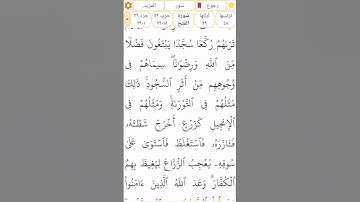 رجوع سور المزيد..
ترتيبها ٤٨ آياتها ٢٩ سُورَة الفَتْح حزب ٥٢ جزء ٢٦
تَرَىٰهُمْ رُكَّعًا سُجَّدًا يَبْتَغُونَ فَضْلًا
مِّنَ ٱللَّهِ وَرِضْوَٰنًا ۖ سِيمَاهُمْ فِى
وُجُوهِهِم مِّنْ أَثَرِ ٱلسُّجُودِ ۚ ذَٰلِكَ
مَثَلُهُمْ فِى ٱلتَّوْرَىٰةِ ۚ وَمَثَلُهُمْ فِى
ٱلْإِنجِيلِ كَزَرْعٍ أَخْرَجَ شَطْـَٔهُۥ
فَـَٔازَرَهُۥ فَٱسْتَغْلَظَ فَٱسْتَوَىٰ عَلَىٰ
سُوقِهِۦ يُعْجِبُ ٱلزُّرَّاعَ لِيَغِيظَ بِهِمُ
ٱلْكُفَّارَ ۗ وَعَدَ ٱللَّهُ ٱلَّذِينَ ءَامَنُوا۟